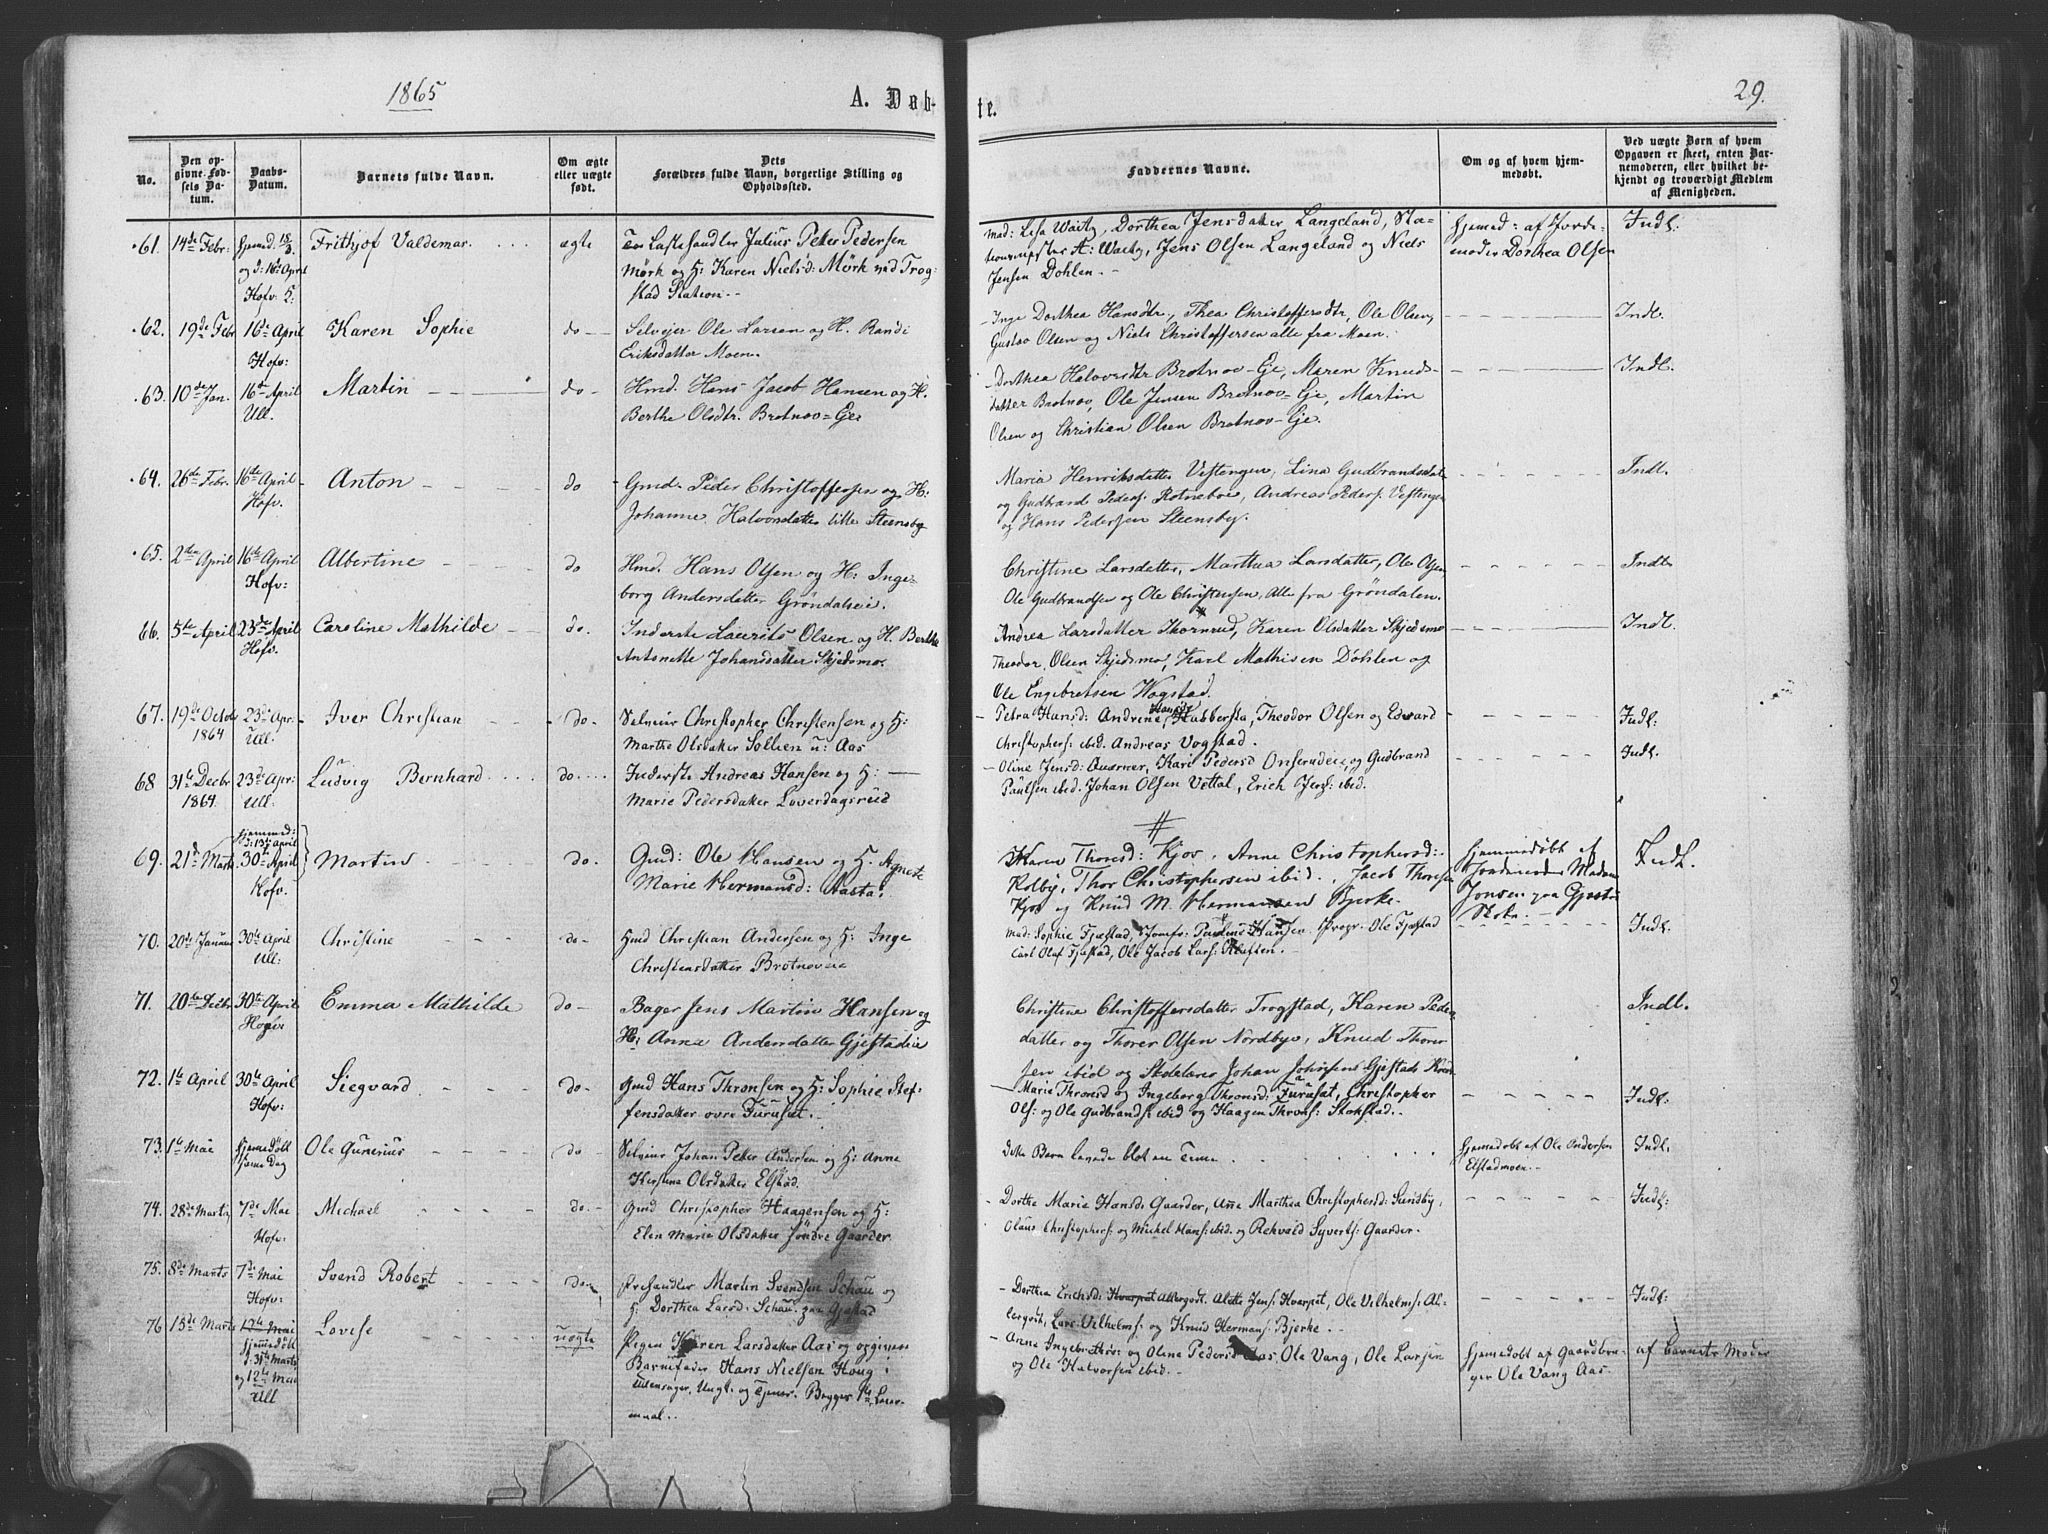 1865
A. Døb-
te.
29.
No.
Den op-
givne Fød-
sels Da-
tum.
Daabs-
Datum.
Barnets fulde Navn.
Om ægte
eller uægte
født.
Dets
Forældres fulde Navn, borgerlige Stilling og
Opholdssted.
Faddernes Navne.
Om og af hvem hjem-
medøbt.
Ved uægte Børn af hvem
Opgaven er skeet, enten Bar-
nemoderen, eller hvilket be-
kjendt og troværdigt Medlem
af Menigheden.
61. 14de Febr. Hjemed. 15/3 Frithjof Valdemar ægte Lastehandler Julius Peter Pedersen
og d: 16de April Mørk og H: Karen Nielsd: Mørk ved Trog-
Hofv: stad Station.
Mad: Lisa Waitz, Dorthea Jensdatter Langeland, Sta-
tionsmester A: Waitz, Jens Olsen Langeland og Niels
Jensen Dohlen.
Hjemed: af Jorde-
moder Dorthea Olsen
Indl.
62. 19de Febr 16de April Karen Sophie do Selveier Ole Larsen og H. Randi
Hofv: Eriksdatter Moen.
Inge Dorthea Hansdtr, Thea Christoffersdtr, Ole Olsen,
Gustav Olsen og Niels Christoffersen alle fra Moen.
Indl.
63. 10de Jan. 16de April Martin do Hmd. Hans Jacob Hansen og H.
Ull. Berthe Olsdtr. Brotnov-Eje
Dorthea Halvorsdtr Brotnov-Eje, Maren Knuds-
datter Brotnov, Ole Jensen Brotnov-Eje, Martin
Olsen og Christian Olsen Brotnov-Eje.
Indl.
64. 26de Febr. 16de April Anton do Gmd. Peder Christoffersen og H:
Hofv. Johanne Halvorsdatter lille Steensby
Maria Henriksdatter Vestengen, Lina Gudbrandsdatr
og Gudbrand Peders: Rotneboe, Andreas Peders: Vestengen
og Hans Pedersen Steensby.
Indl.
65. 2den April 16de April Albertine do Hmd. Hans Olsen og H: Inge-
Hofv: borg Andersdatter Grøndaleie.
Christine Larsdatter, Marthea Larsdatter, Ole Olsen
Ole Gudbrandsen og Ole Christensen, Alle fra Grøndalen.
Indl.
66. 5te April 23de April Caroline Mathilde do. Inderste Laurits Olsen og H. Berthe
Hofv. Antonette Johansdatter Skjedsmo.
Andrea Larsdatter Thornrud, Karen Olsdatter Skjedsmo
Theodor Olsen Skjedsmo, Karl Mathisen Døhlen og
Ole Engebretsen Wogstad.
Indl.
67. 19de Octob 23de Apr. Iver Christian do. Selveier Christopher Christensen og H:
1864 Ull. Marthe Olsdatter Sollien u: Aas
Petra Hansd: Andrine Hansd: Hubbersta, Theodor Olsen og Edvard
Christophers: ibid. Andreas Vogstad.
Indl:
68 31te Decbr 23de Apr: Ludvig Bernhard do. Inderste Andreas Hansen og H:
1864. Ull: Marie Pedersdatter Løverdagsrud
Oline Jensd: Auerner, Kari Pedersd Onserudeie, og Gudbrand
Paulsen ibid. Johan Olsen Vettal, Erich Jørg: ibid.
Indl.
69. 21de Marts Hjemmed: d: 13de April 30te April Martin do. Gmd: Ole Hansen og H. Agnete
Hofv. Marie Hermansd: Aasta.
Karen Thoresd: Kjos, Anne Christophersd:
Kolby, Thor Christophersen ibid. Jacob Thoresen
Kjos og Knud M. Hermansen Bjerke.
Hjemmedøbt af
Jordemoder Madam
Jonsen paa Gjestad
Indl.
70. 20de Januar 30te April Christine do. Hmd Christian Andersen og H: Inge
Ull: Christensdatter Brotnoveie
Mad: Sophie Fjæstad, Jomfr: Pauline Hansen, Propr. Ole Fjæstad
Carl Oluf Fjæstad, Ole Jacob Lars: Kluften.
Indl.
71. 20de Decbr 30te April Emma Mathilde do Bager Jens Martin Hansen og
H: Anna Andersdatter Gjestadeie
Christine Christoffersdatter Trogstad, Karen Peders-
datter og Thorer Olsen Nordbye, Knud Thorer-
sen ibid og Skolelærer Johan Johnsens Gjestads
Indl.
72. 1te April 30te April Siegvard do Gmd Hans Thronsen og H: Sophie Stef-
Hofv: fensdatter øvre Furuset.
Marie Thronsd og Ingeborg Thronsd: Furuset, Christopher
Ols: og Ole Gudbrands: ibid og Haagen Throns: Stokstad.
Indl:
73. 1te Mai Hjemedøbt Ole Gunerius do Selveier Johan Peter Andersen og H: Anne
same Dag Kerstine Olsdatter Elstad.
Dette Barn levede blot en Time
Hjemedøbt af Ole Andersen
Elstadmoen.
Indl.
74. 28de Marts 7de Mai Michael do. Gmd Christopher Haagensen og H:
Hofv: Elen Marie Olsdatter søndre Gaarder
Dorthe Marie Hansd: Gaarder, Anne Marthea Christophersd: Sundby,
Olaus Christophers: og Michel Hans: ibid. og Rekvald Syverts: Gaarder.
Indl:
75. 8de Marts 7de Mai Svend Robert do. Prehandler Martin Svendsen Schau og
Hofv: H: Dorthea Larsd: Schau paa Gjestad
Dorthea Erichsd: Kvarpet Allergodt, Alette Jens: Kvarpet, Ole Vilhelms: Al-
lergodt, Lars Vilhelms: og Knud Hermans: Bjerke.
Indl:
76 15de Marts 12te Mai Lovise uægte Pigen Karen Larsdatter Aas og opgiven
hjemedøbt Barnefader Hans Nielsen Haug
d: 31te Marts Ullensager, Ungk. og Tjener. Begges 1te Leier-
og 12te Mai maal.
Ull
Anne Ingebr:dtr: og Oline Pedersd Aas, Ole Vang, Ole Larsen
og Ole Halvorsen ibid.
Hjemedøbt af Gaardbru-
ger Ole Vang Aas.
af Barnets Moder